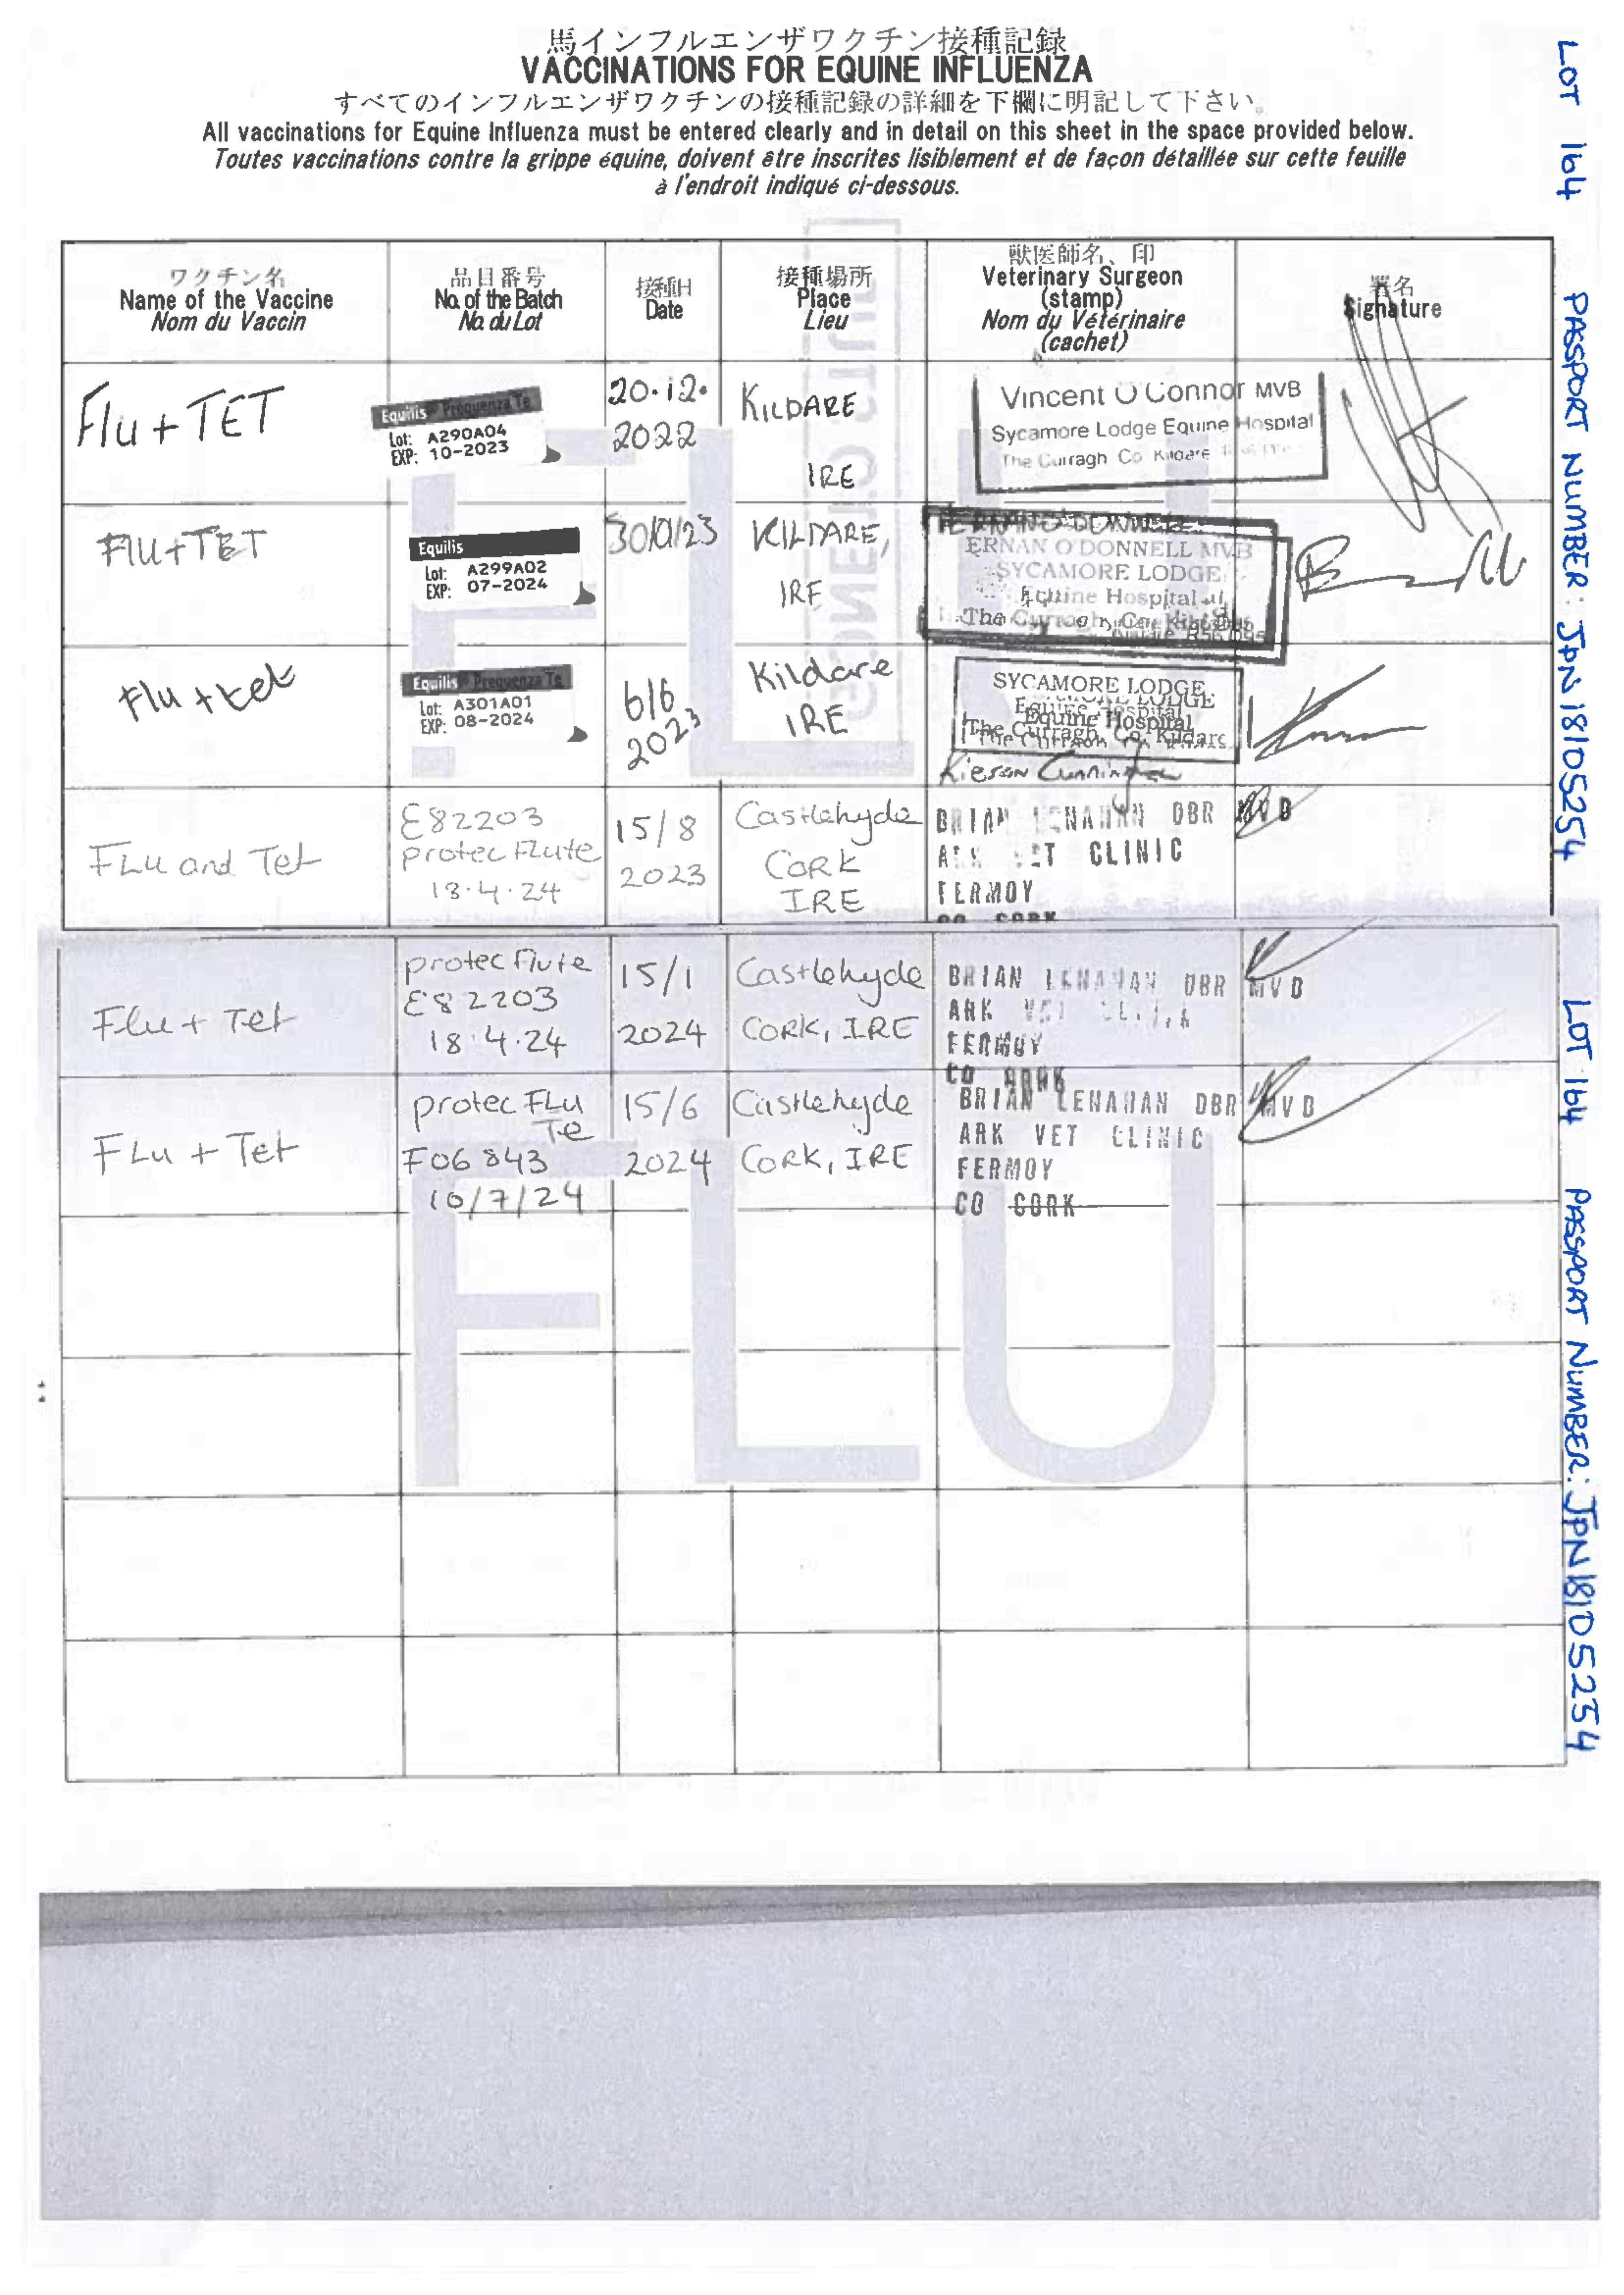 馬インフルエンザワクチン接種記録
VACCINATIONS FOR EQUINE INFLUENZA
すべてのインフルエンザワクチンの接種記録の詳細を下欄に明記して下さい。
All vaccinations for Equine Influenza must be entered clearly and in detail on this sheet in the space provided below.
Toutes vaccinations contre la grippe équine, doivent être inscrites lisiblement et de façon détaillée sur cette feuille
à l'endroit indiqué ci-dessous.
ワクチン名
Name of the Vaccine
Nom du Vaccin
品目番号
No. of the Batch
No. du Lot
接種日
Date
接種場所
Place
Lieu
獣医師名、印
Veterinary Surgeon
(stamp)
Nom du Vétérinaire
(cachet)
署名
Signature
Flu + TET
Equilis Prequenza Te
Lot: A290A04
EXP: 10-2023
20.12.
2022
KILDARE
IRE
Vincent O'Connor MVB
Sycamore Lodge Equine Hospital
The Curragh Co Kildare
Flu + TET
Equilis
Lot: A299A02
EXP: 07-2024
30/01/23
KILDARE,
IRE
ERNAN O'DONNELL MVB
SYCAMORE LODGE
Equine Hospital
The Curragh, Co. Kildare
Flu + tet
Equilis Prequenza Te
Lot: A301A01
EXP: 08-2024
6/6
2023
Kildare
IRE
SYCAMORE LODGE
Equine Hospital
The Curragh, Co. Kildare
Kieran Cunningham
FLu and Tet
E82203
protec Flute
18.4.24
15/8
2023
Castlehyde
CORK
IRE
BRIAN LENAHAN DBR MVB
ARK VET CLINIC
FERMOY
CO CORK
Flu + Tet
protec flute
E82203
18.4.24
15/1
2024
Castlehyde
CORK, IRE
BRIAN LENAHAN DBR MVB
ARK VET
FERMOY
CO CORK
FLu + Tet
protec FLu
Te
F06843
10/7/24
15/6
2024
Castlehyde
CORK, IRE
BRIAN LENAHAN DBR MVB
ARK VET CLINIC
FERMOY
CO CORK
FLU
LOT 164 PASSPORT NUMBER: JPN18105254
LOT 164 PASSPORT NUMBER: JPN18105254